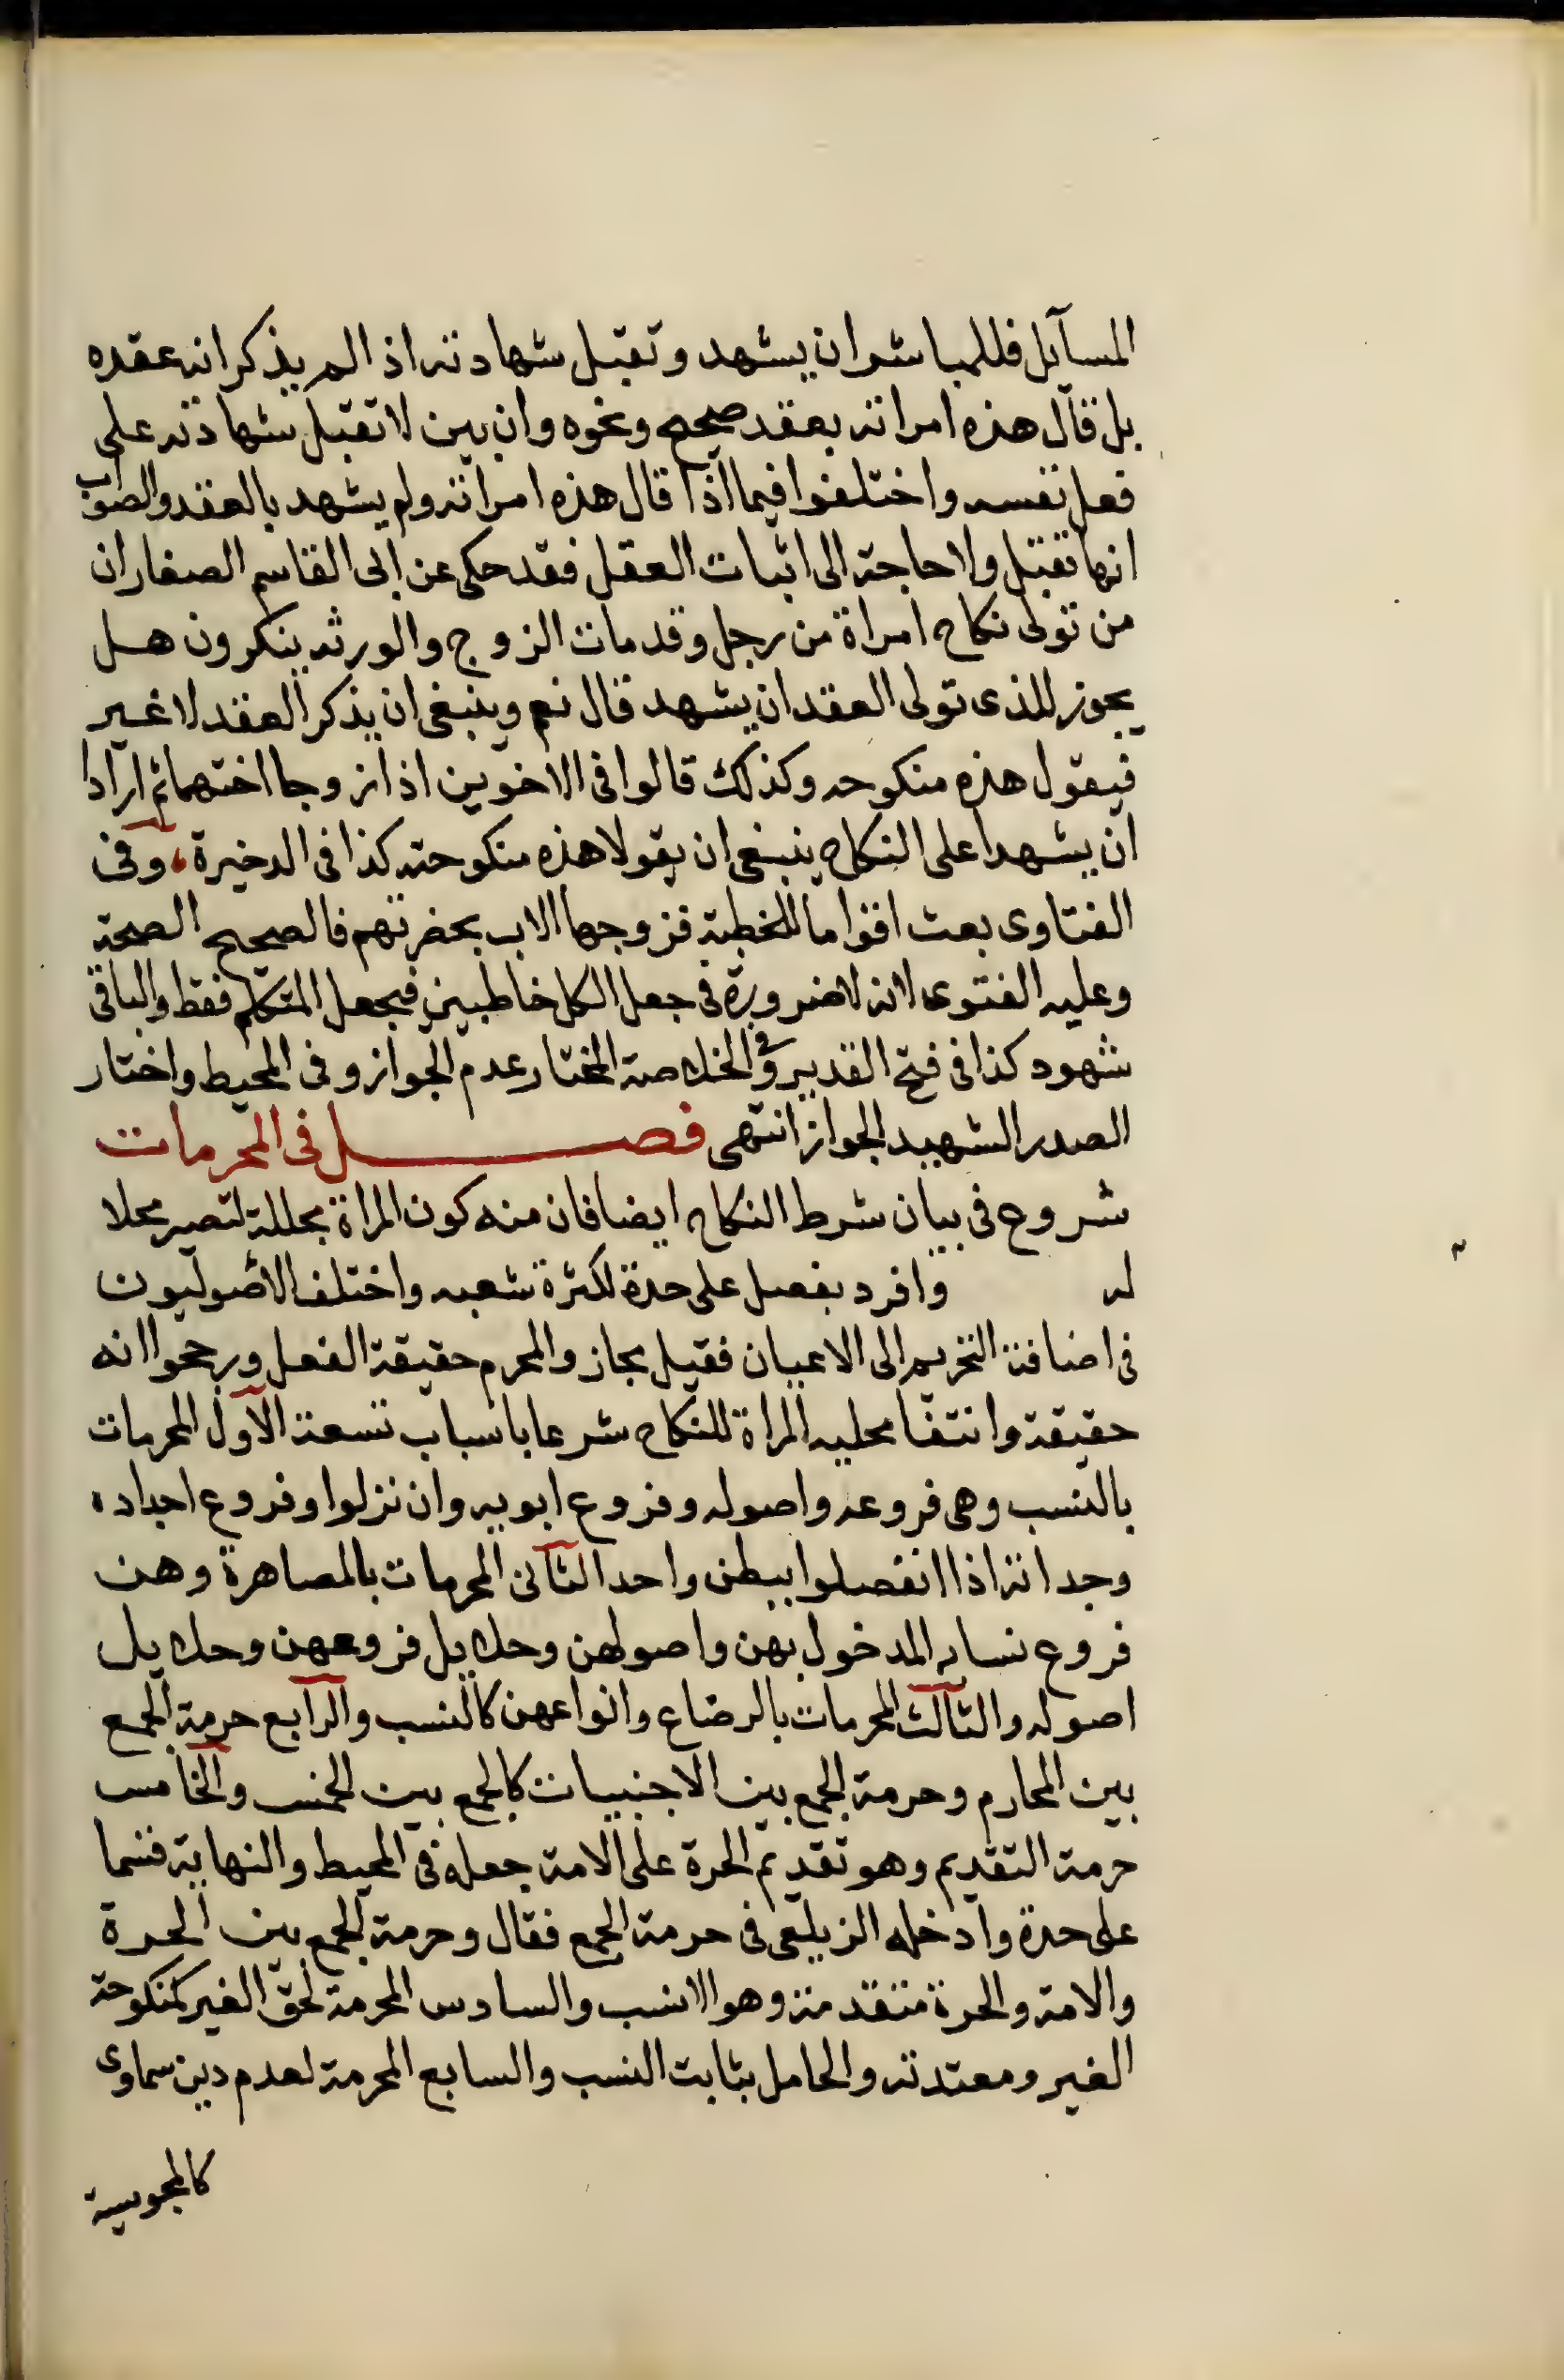 المسآئل فللمباشر ان يشهد وتقبل شهادته اذا لم يذكر انه عقده
بل قال هذه امراته بعقد صحيح ونحوه وان بين لا تقبل شهادته على
فعل نفسه واختلفوا فيما اذا قال هذه امراته ولم يشهد بالعقد والصواب
انها تقبل ولا حاجة الى اثبات العقل فقد حكى عن ابى القاسم الصفار ان
من تولى نكاح امراة من رجل وقد مات الزوج والورثه ينكرون هل
يجوز للذى تولى العقد ان يشهد قال نعم وينبغى ان يذكر العقد لا غير
فيقول هذه منكوحه وكذلك قالوا فى الاخوين اذا زوجا اختهما ثم ارادا
ان يشهدا على النكاح ينبغى ان يقولا هذه منكوحته كذا فى الدخيرة، وفى
الفتاوى بعث اقواما للخطبة فزوجها الاب بحضرتهم فالصحيح الصحة
وعليه الفتوى لانه لا ضرورة فى جعل الكل خاطبين فيجعل المتكلم فقط والباقى
شهود كذا فى فتح القدير وفى الخلاصة المختار عدم الجواز وفى المحيط واختار
الصدر الشهيد الجواز انتهى فصل فى المحرمات
شروح فى بيان شرط النكاح ايضا فان منه كون المراة محللة لتصير محلا
له وافرد بفصل على حدة لكثرة شعبه واختلف الاصوليون
فى اضافة التحريم الى الاعيان فقيل مجاز والمحرم حقيقة الفعل ورجحوا انه
حقيقة وانتفا محليه المراة للنكاح شرعا باسباب تسعة الآول المحرمات
بالنسب وهى فروعه واصوله وفروع ابويه وان نزلوا وفروع اجداده
وجداته اذا انفصلوا ببطن واحد الثآنى المحرمات بالمصاهرة وهن
فروع نسايه المدخول بهن واصولهن وحلايل فروعهن وحلايل
اصوله والثآلث المحرمات بالرضاع وانواعهن كالنسب والرآبع حرمة الجمع
بين المحارم وحرمة الجمع بين الاجنبيات كالجمع بين الخمس والخآمس
حرمة التقديم وهو تقديم الحرة على الامة جعله فى المحيط والنهاية قسما
على حدة وادخله الزيلعى فى حرمة الجمع فقال وحرمة الجمع بين الحرة
والامة والحرة متقدمة وهو الانسب والسادس المحرمة لحق الغير كمنكوحة
الغير ومعتدته والحامل بثابت النسب والسابع المحرمة لعدم دين سماوى
كالمجوسية